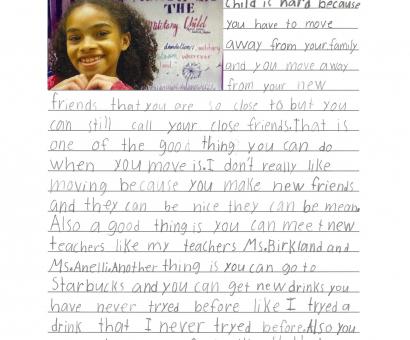 THE
Military Child
child is hard because
you have to move
away from your family
and you move away
from your new
friends that you are so close to but you
can still call your close friends.That is
one of the good thing you can do
when you move is.I don't really like
moving because you make new friends
and they can be nice they can be mean.
Also a good thing is you can meet new
teachers like my teachers Ms.Birkland and
Ms.Anelli.Another thing is you can go to
Starbucks and you can get new drinks you
have never tryed before like I tryed a
drink that I never tryed before.Also you